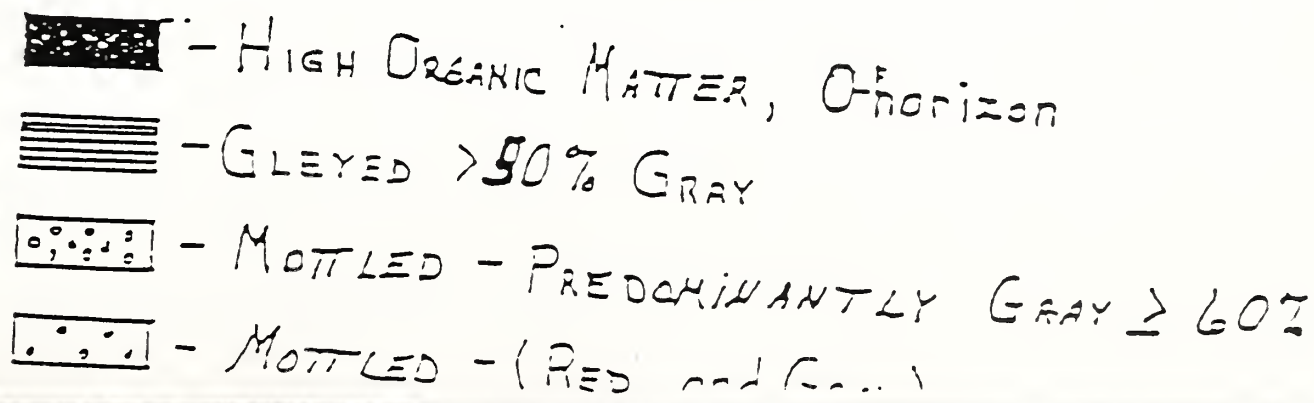 - HIGH ORGANIC MATTER, O-horizon
- GLEYED >90% GRAY
- MOTTLED - PREDOMINANTLY GRAY ≥ 60%
- MOTTLED - (RED and